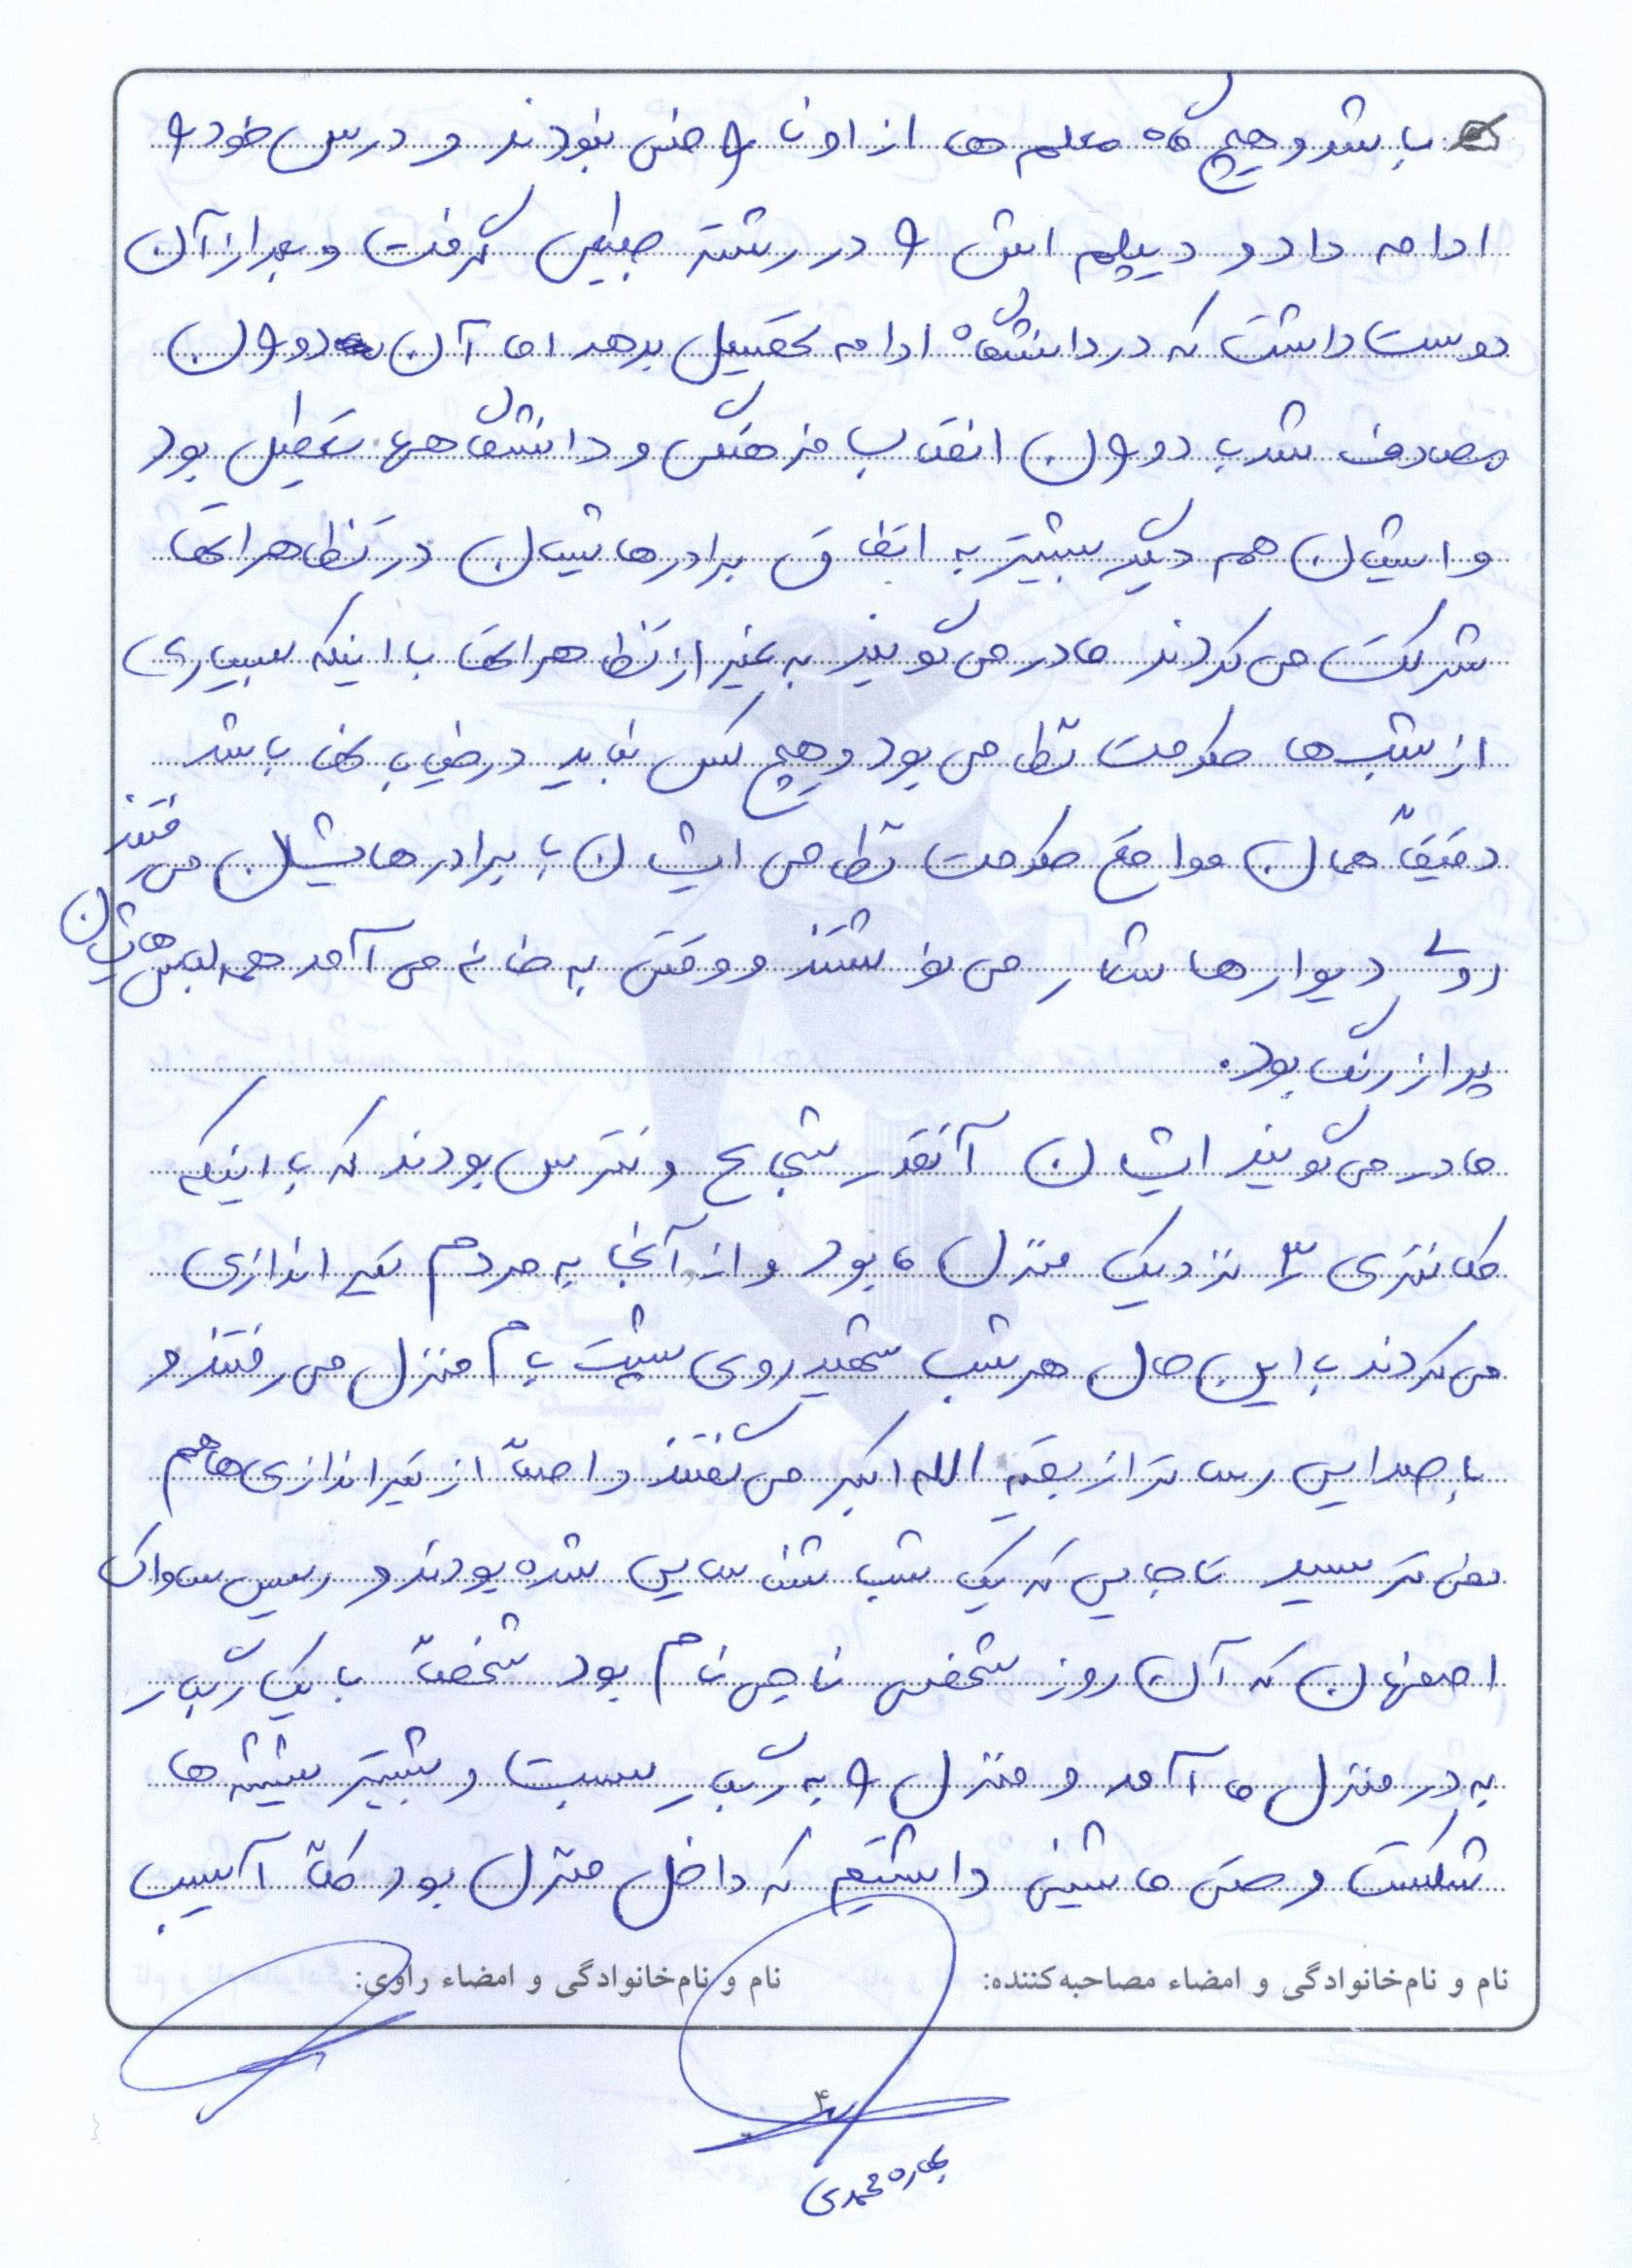 باشد و هیچ گاه معلم ها از او ناراضی نبودند و درس خود را
ادامه داد و دیپلم اش را در رشته طبیعی گرفت و بعد از آن
دوست داشت که در دانشگاه ادامه تحصیل بدهد اما آن دوران
مصادف شد با دوران انقلاب فرهنگی و دانشگاهها تعطیل بود
و ایشان هم دیگر بیشتر به اتفاق برادرهایشان در تظاهراتها
شرکت می کردند مادر می گویند به غیر از تظاهراتها با اینکه بسیاری
از شب ها حکومت نظامی بود و هیچ کس نباید در خیابانها باشد
دقیقاً همان مواقع حکومت نظامی ایشان با برادرهایشان می رفتند
روی دیوارها شعار می نوشتند و وقتی به خانه می آمد همه لباس هایشان
پر از رنگ بود.
مادر می گویند ایشان آنقدر شجاع و نترس بودند که با اینکه
کلانتری ۳ نزدیک منزل ما بود و از آنجا به مردم تیراندازی
می کردند با این حال هر شب شهید روی پشت بام منزل می رفتند و
با صدایی رساتر از بقیه الله اکبر می گفتند و اصلاً از تیراندازی ها هم
نمی ترسید تا جایی که یک شب شناسایی شده بودند و رییس ساواک
اصفهان که آن روز شخصی ناجی نام بود شخصاً با یک رگبار
به در منزل ما آمد و منزل را به رگبار بست و بیشتر شیشه ها
شکست و حتی ماشینی داشتیم که داخل منزل بود کلاً آسیب
نام و نام‌خانوادگی و امضاء مصاحبه‌کننده: نام و نام‌خانوادگی و امضاء راوی:
۴
بهاره محمدی